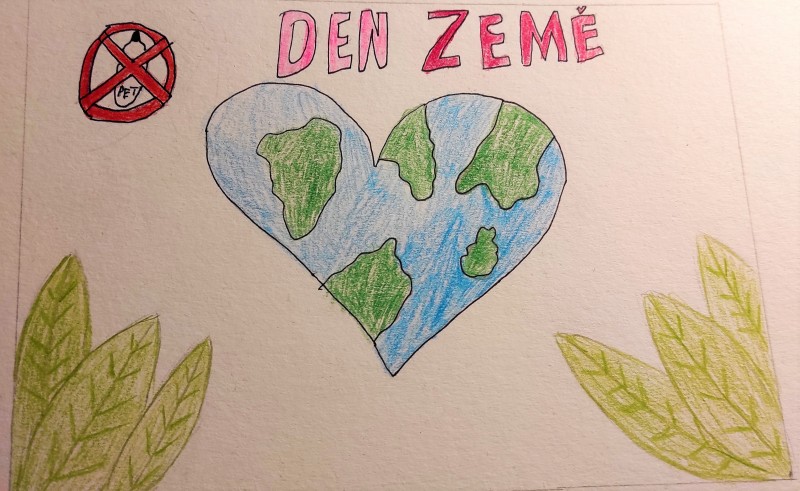 DEN ZEMĚ
PET